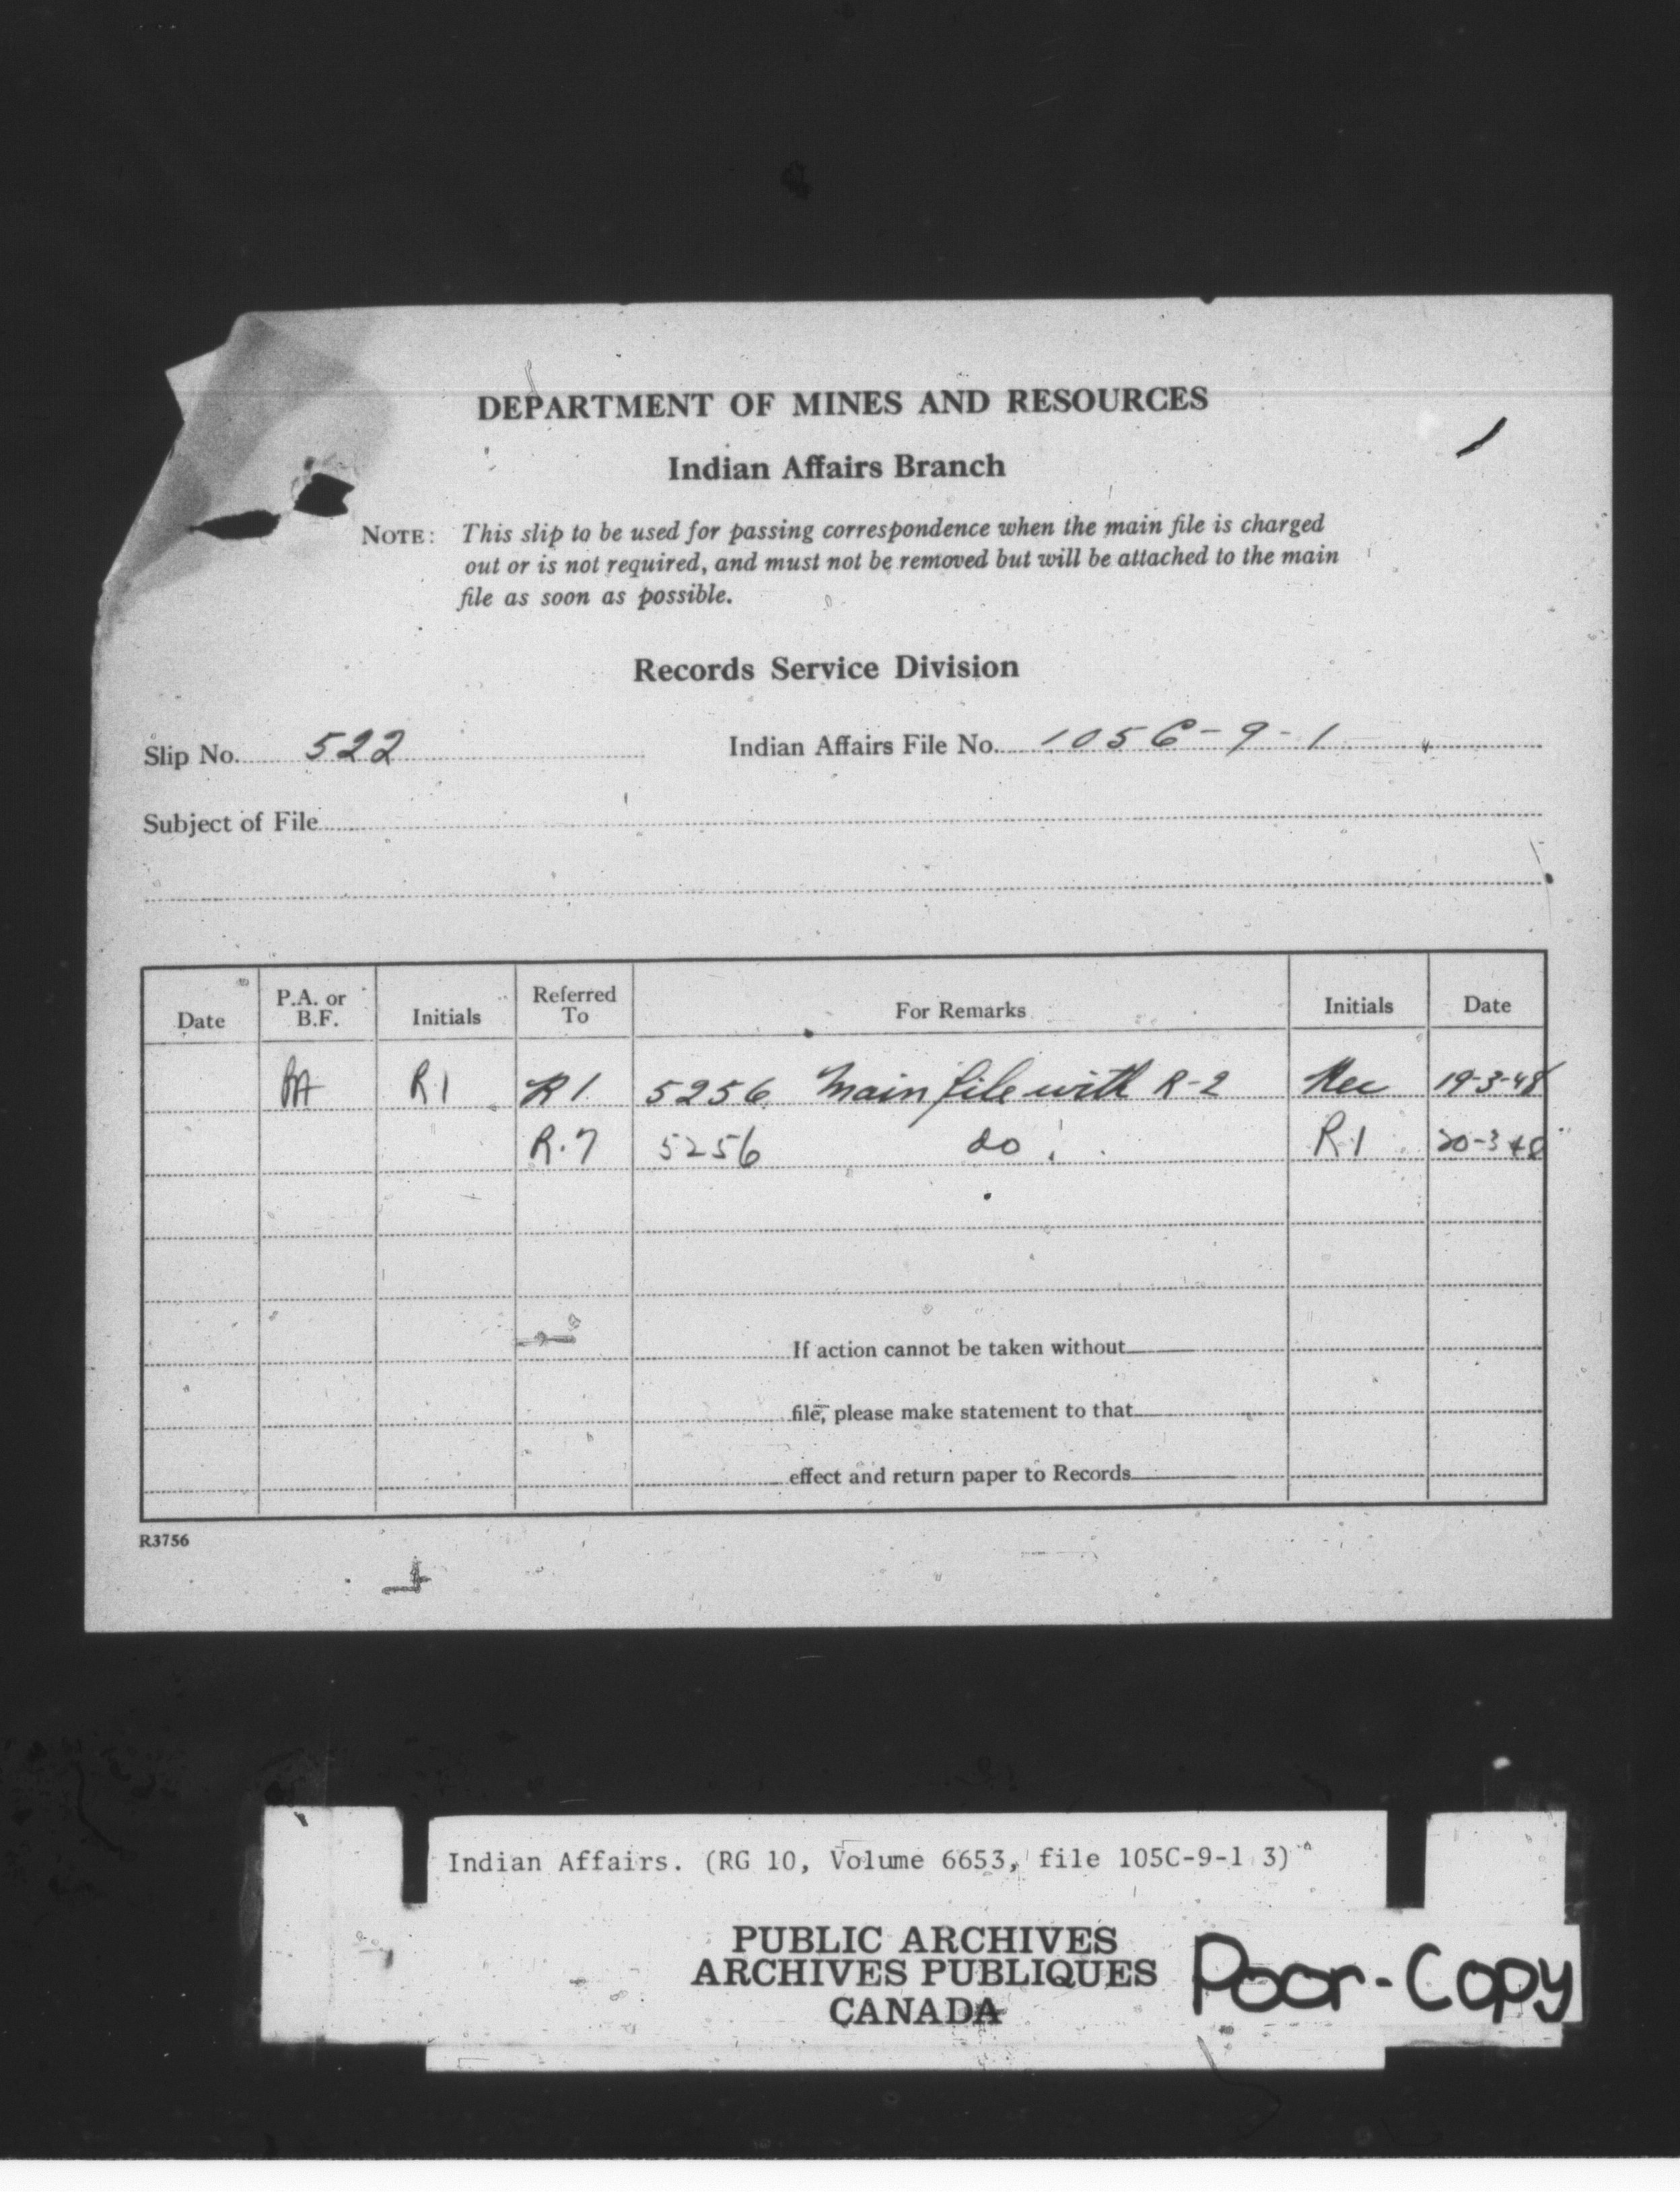 DEPARTMENT OF MINES AND RESOURCES
Indian Affairs Branch
NOTE: This slip to be used for passing correspondence when the main file is charged
out or is not required, and must not be removed but will be attached to the main
file as soon as possible.
Records Service Division
Slip No. 522 Indian Affairs File No. 105C-9-1
Subject of File
Date P.A. or B.F. Initials Referred To For Remarks Initials Date
PA R1 R1 5256 Main file with R-2 Rec 19-3-48
R.7 5256 do R1 20-3-48
If action cannot be taken without
file, please make statement to that
effect and return paper to Records
R3756
Indian Affairs. (RG 10, Volume 6653, file 105C-9-1 3)
PUBLIC ARCHIVES
ARCHIVES PUBLIQUES
CANADA
Poor-Copy